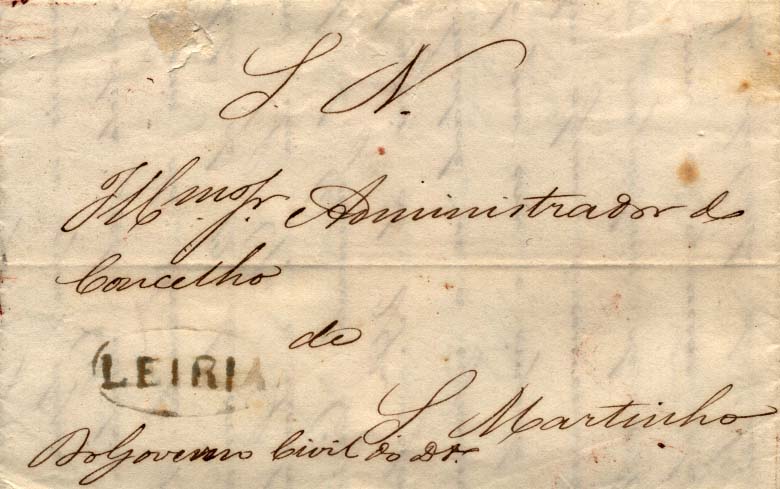 S. N.
Illmo Sr. Administrador do
Concelho
de
LEIRIA
S Martinho
Do Governo Civil do Dr.